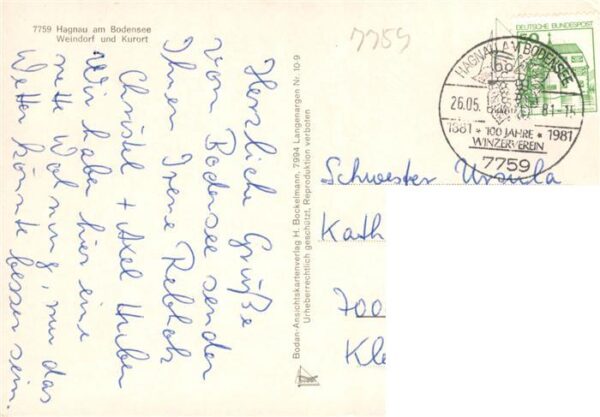 7759 Hagnau am Bodensee
Weindorf und Kurort
7759
DEUTSCHE BUNDESPOST
50
HAGNAU AM BODENSEE
26.05. 81-15
1881 * 100 JAHRE * 1981
WINZERVEREIN
7759
Herzliche Grüße
vom Bodensee senden
Ihnen Irene
Christel + Axel Huber
Wir haben hier eine
nette Wohnung, nur das
Wetter könnte besser sein.
Bodan-Ansichtskartenverlag H. Bockelmann, 7994 Langenargen Nr. 10-9
Urheberrechtlich geschützt, Reproduktion verboten
Schwester Ursula
Kath
700
Kl